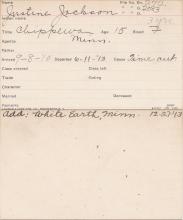 Name
Justine Jackson
3 yrs.
Tribe Chippewa Age 15 Blood F
Agency Minn.
Father
Arrived 9-8-10 Departed 6-11-13 Cause Time out
Class entered Class left
Trade Outing
Character
Married Deceased
Add; White Earth, Minn. 12-27-13